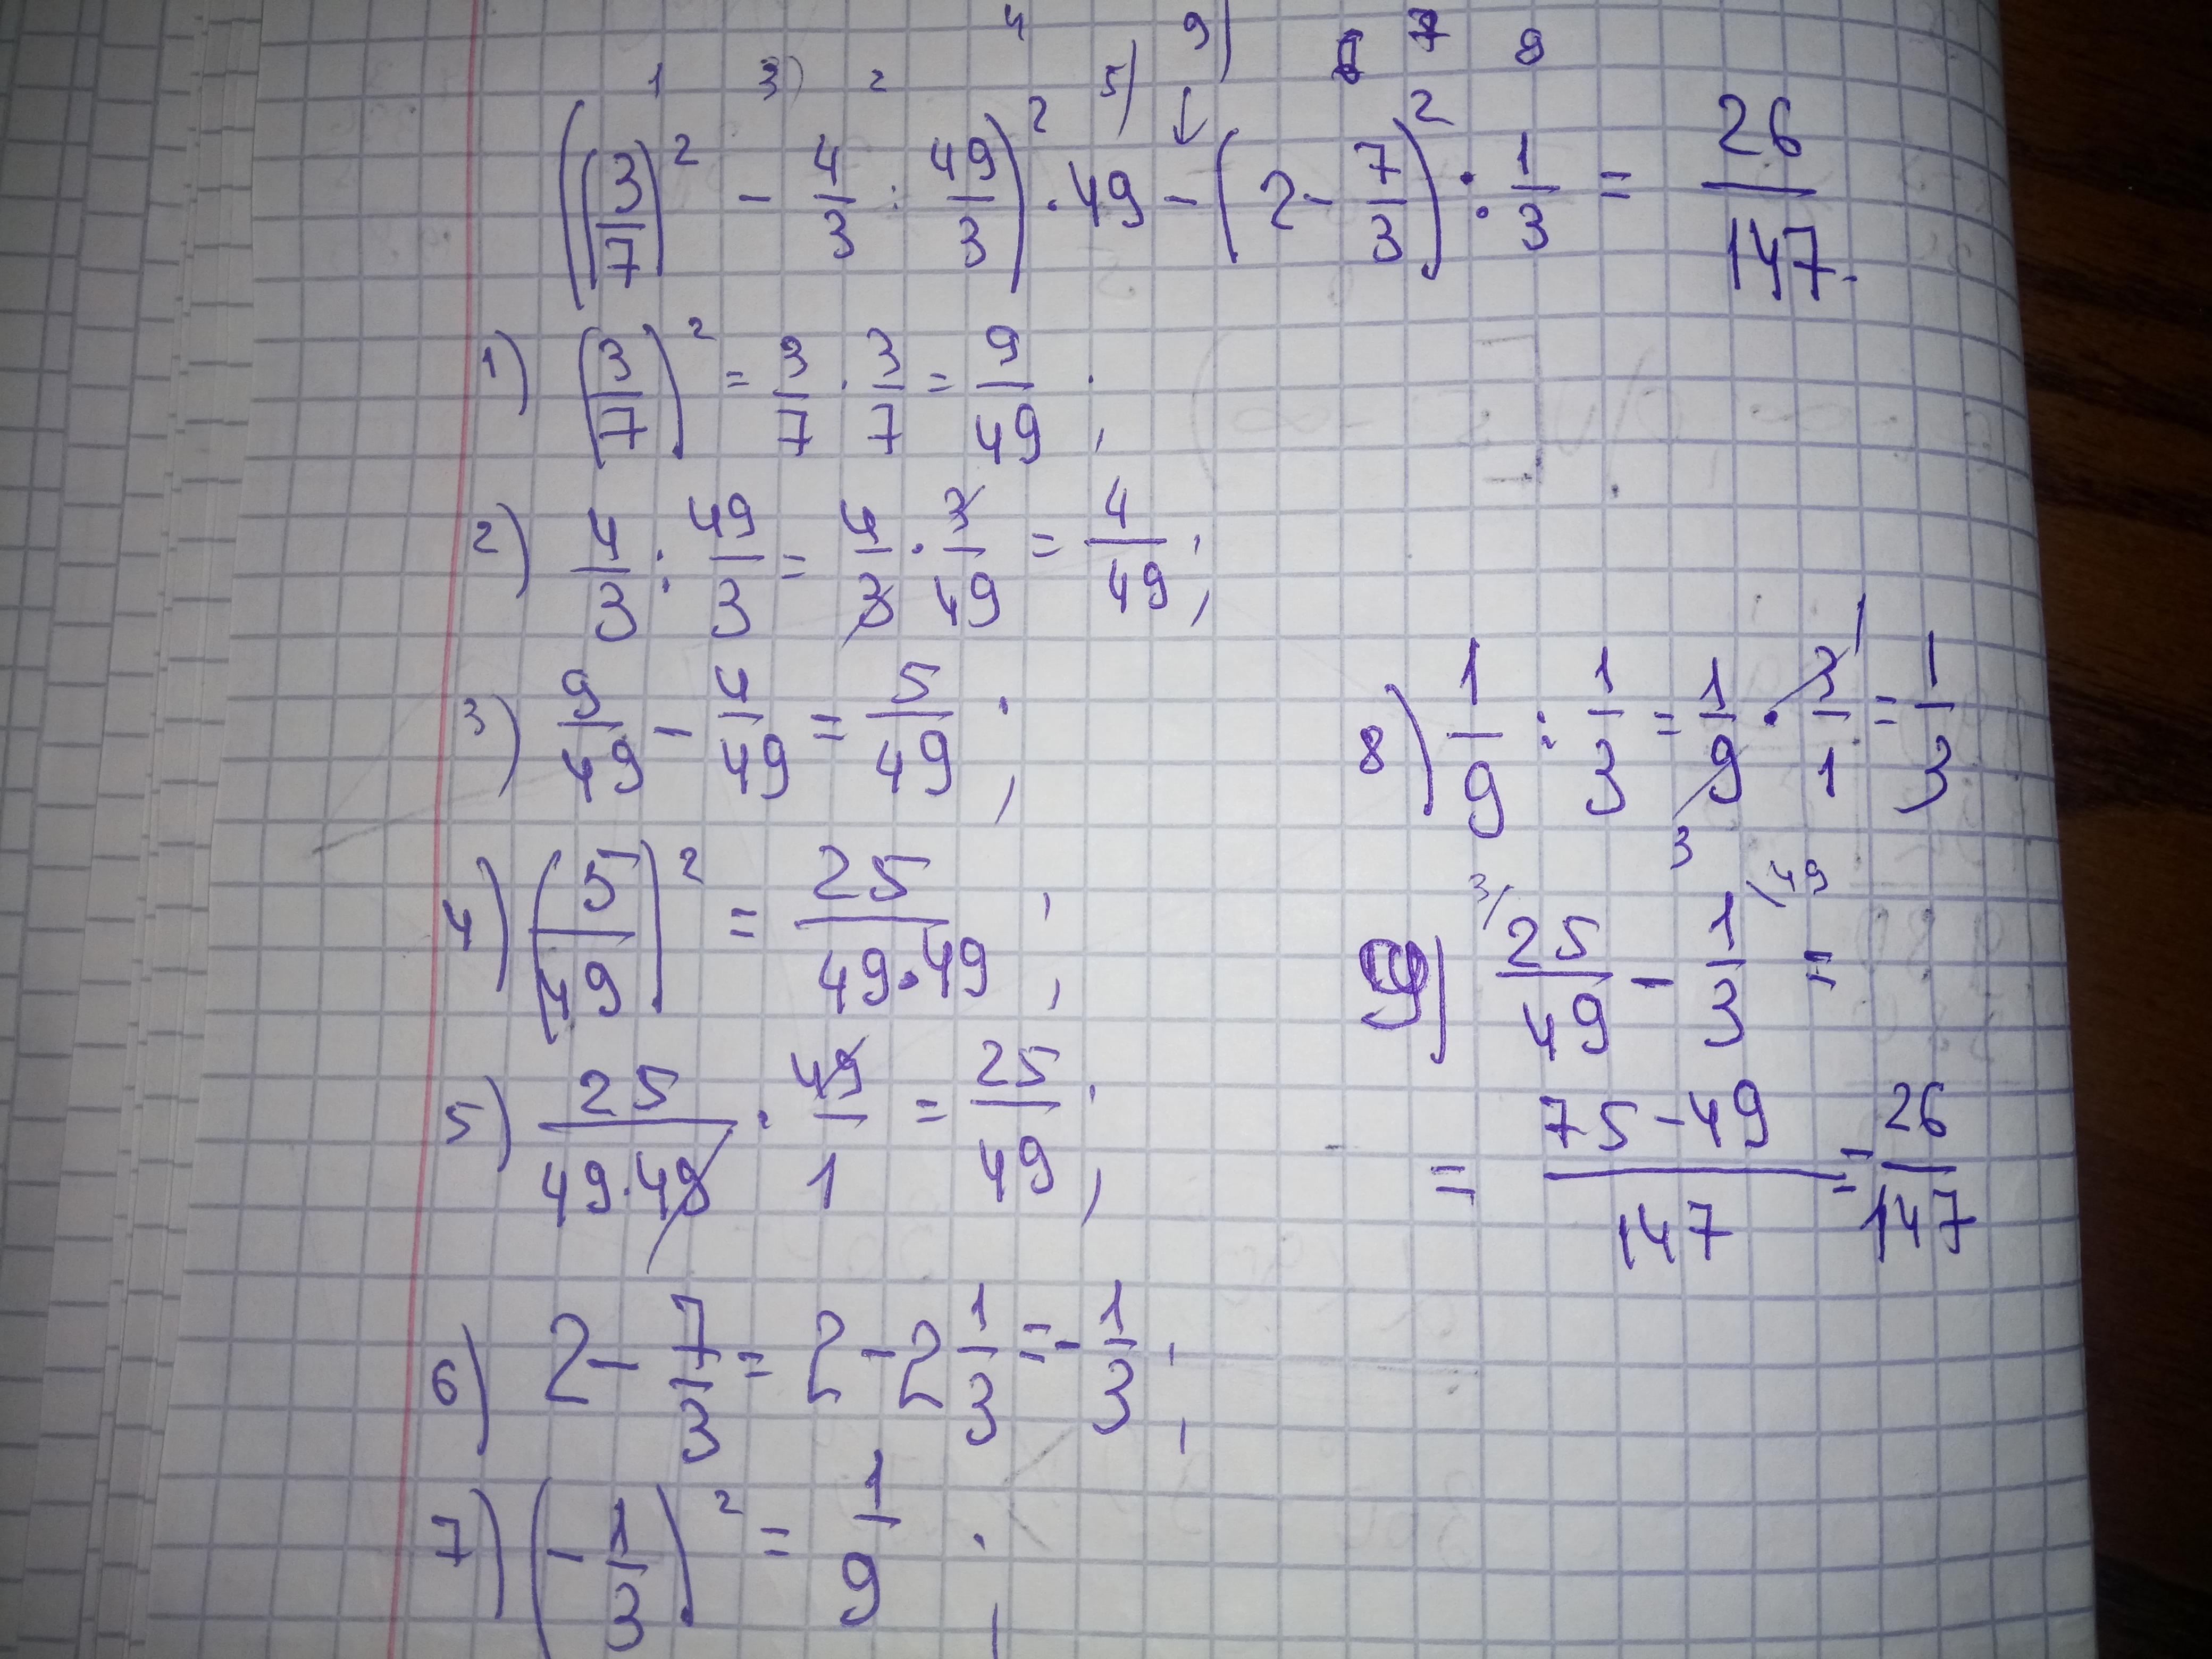 1 3) 2 4 5) 9) 6 7 8
((3/7)² - 4/3 : 49/3)² · 49 - (2 - 7/3)² : 1/3 = 26/147.
1) (3/7)² = 3/7 · 3/7 = 9/49;
2) 4/3 : 49/3 = 4/3 · 3/49 = 4/49;
3) 9/49 - 4/49 = 5/49;
4) (5/49)² = 25/49·49;
5) 25/49·49 · 49/1 = 25/49;
6) 2 - 7/3 = 2 - 2 1/3 = - 1/3;
7) (- 1/3)² = 1/9;
8) 1/9 : 1/3 = 1/9 · 3/1 = 1/3
9) 3/ 25/49 - 1/3 /49 =
= 75-49/147 = 26/147